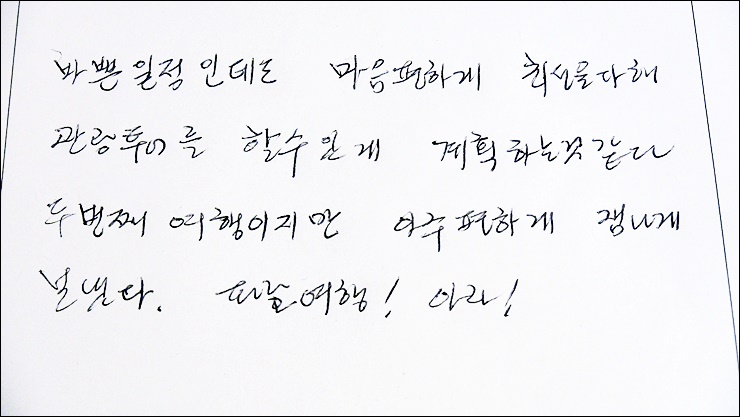 바쁜일정인데도 마음편하게 최선을다해
관광투어를 할수있게 계획하는것같다
두번째 여행이지만 아주편하게 잼나게
보냈다. 파랑여행! 아라!